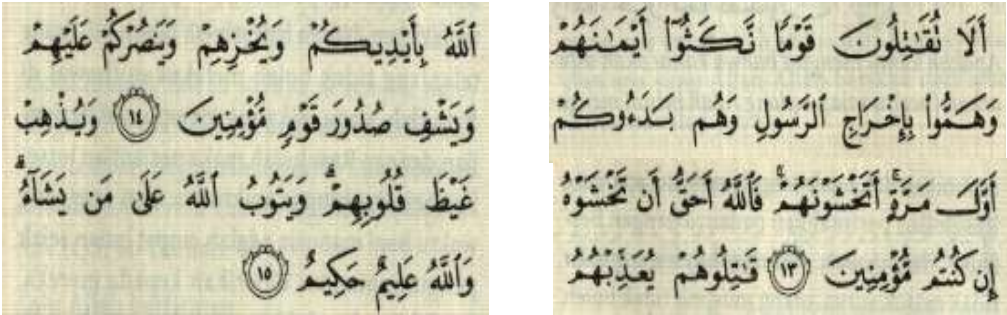 أَلَا تُقَٰتِلُونَ قَوْمًا نَّكَثُوٓا۟ أَيْمَٰنَهُمْ
وَهَمُّوا۟ بِإِخْرَاجِ ٱلرَّسُولِ وَهُم بَدَءُوكُمْ
أَوَّلَ مَرَّةٍ ۚ أَتَخْشَوْنَهُمْ ۚ فَٱللَّهُ أَحَقُّ أَن تَخْشَوْهُ
إِن كُنتُم مُّؤْمِنِينَ ١٣ قَٰتِلُوهُمْ يُعَذِّبْهُمُ
ٱللَّهُ بِأَيْدِيكُمْ وَيُخْزِهِمْ وَيَنصُرْكُمْ عَلَيْهِمْ
وَيَشْفِ صُدُورَ قَوْمٍ مُّؤْمِنِينَ ١٤ وَيُذْهِبْ
غَيْظَ قُلُوبِهِمْ ۗ وَيَتُوبُ ٱللَّهُ عَلَىٰ مَن يَشَآءُ ۗ
وَٱللَّهُ عَلِيمٌ حَكِيمٌ ١٥